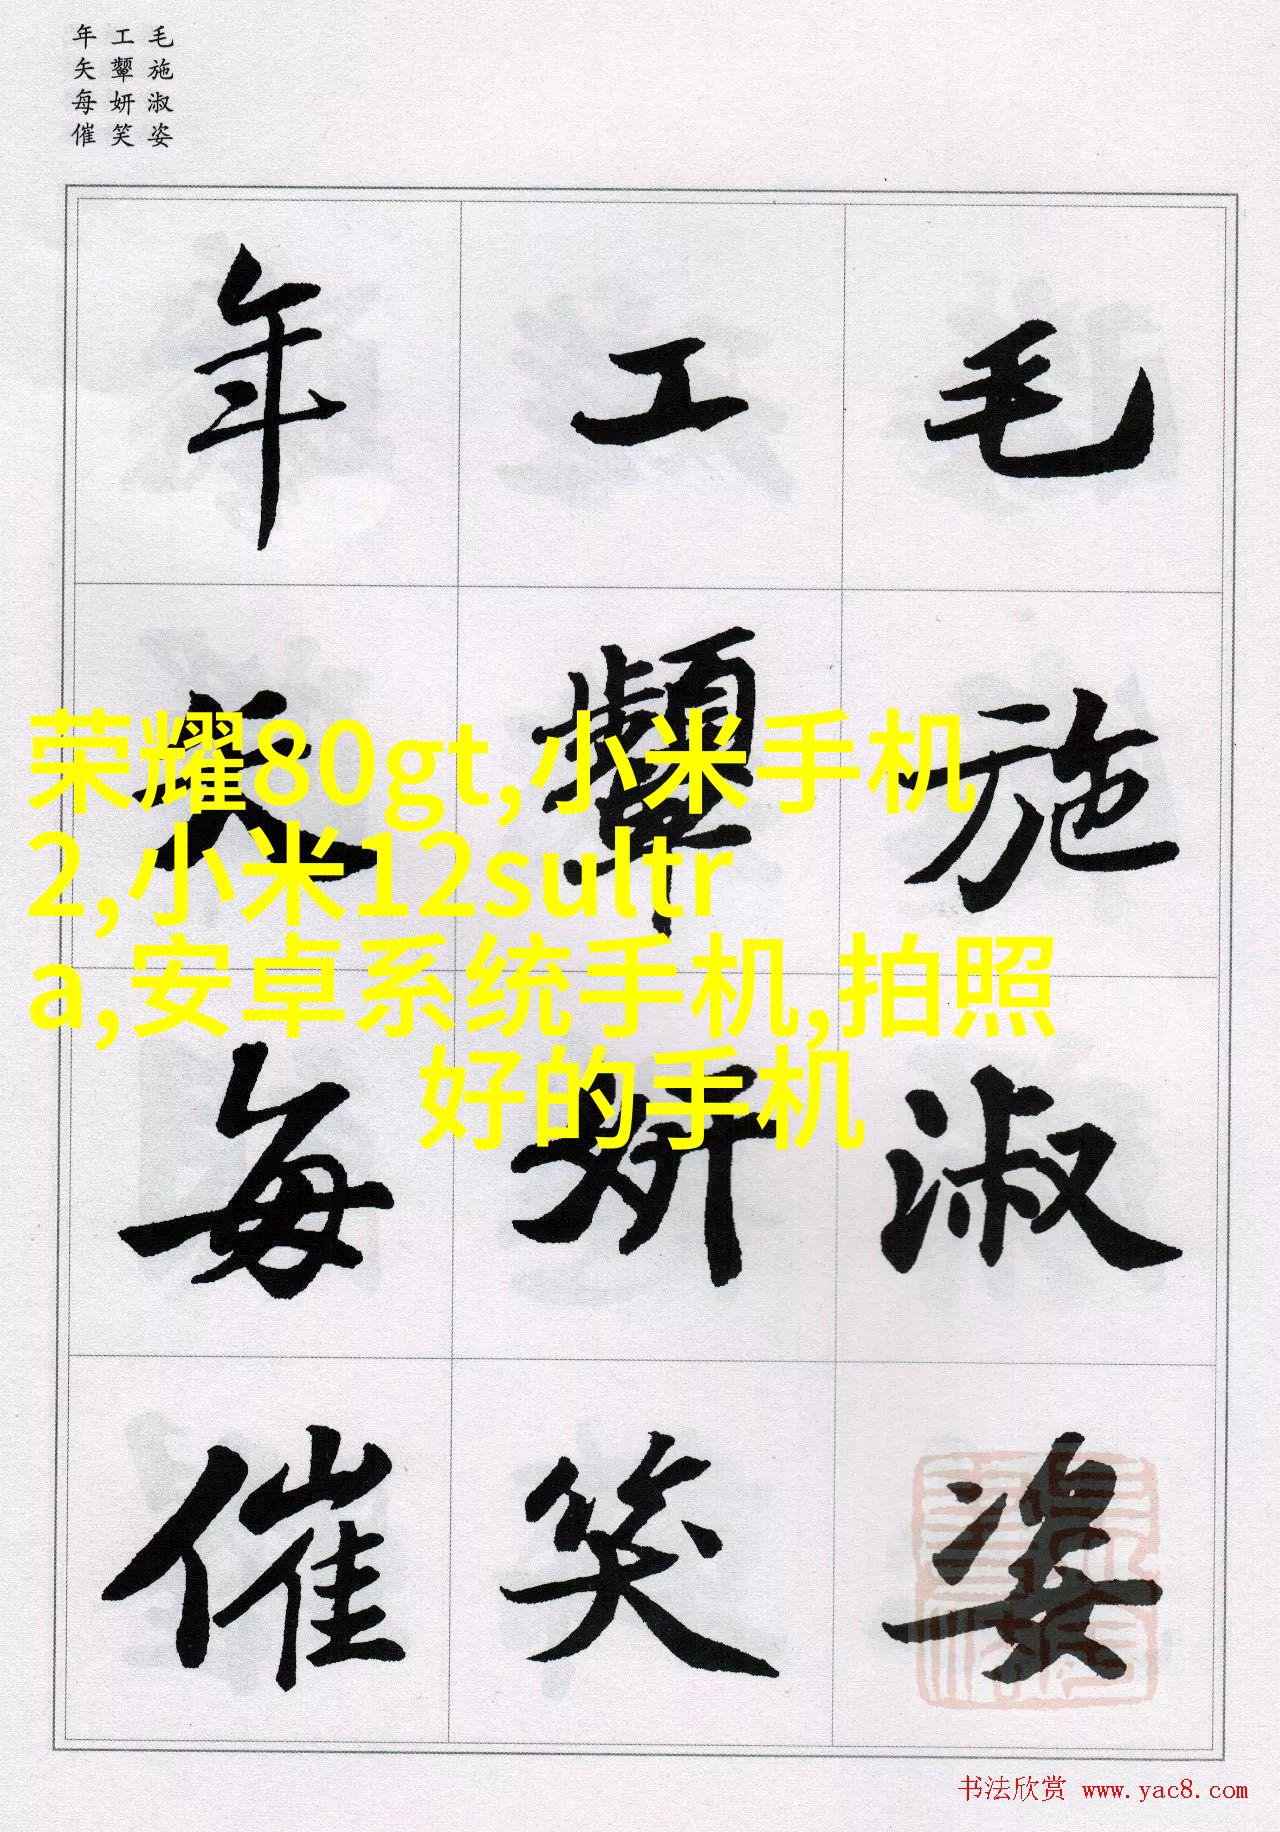 毛施淑姿
工顰妍笑
年矢每催
毛施淑姿
工顰妍笑
年矢每催
荣耀80gt,小米手机
2,小米12sultr
a,安卓系统手机,拍照
好的手机
书法欣赏 www.yac8.com